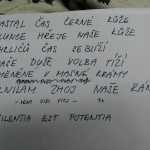 ASTAL ČAS ČERNÉ RŮŽE
UNCE HŘEJE NAŠE KŮŽE
ČAS
AŠE DUŠE VOLBA TÍŽÍ
MĚNĚNE V MASNÉ KRÁMY
LNILÁM ZHOJ NAŠE RÁN
ILENTIA EST POTENTIA